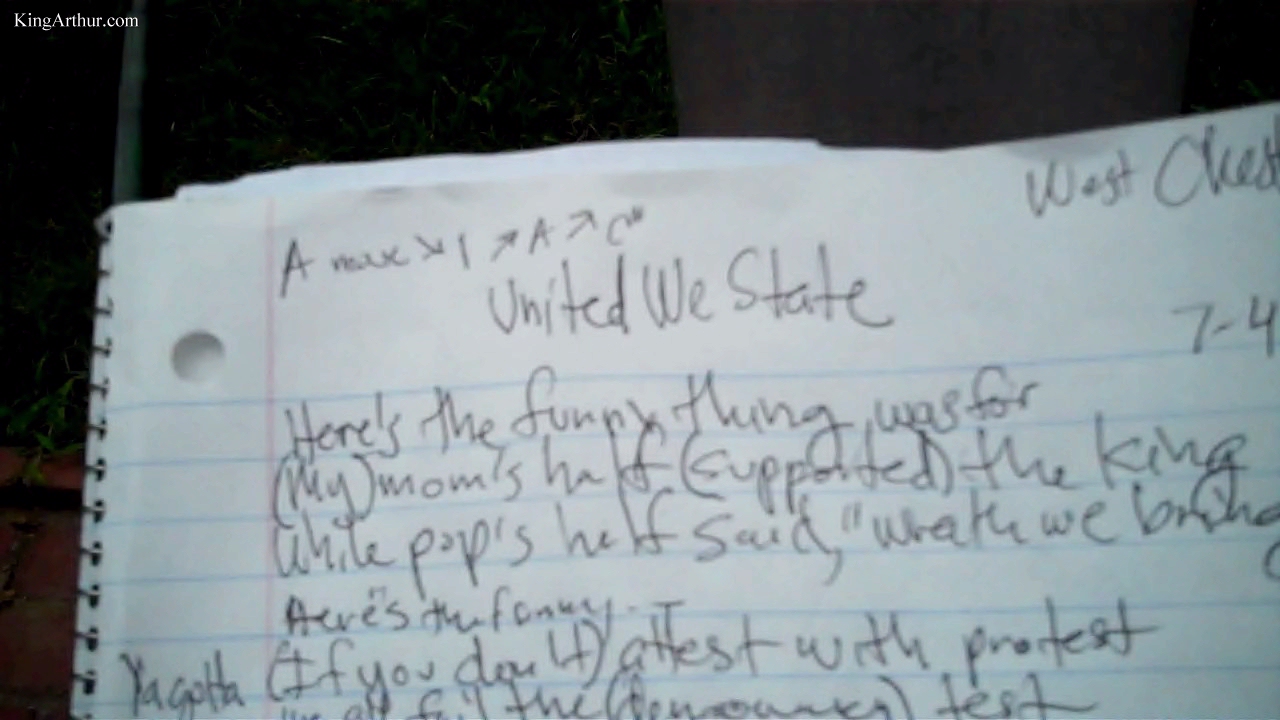 KingArthur.com
West Chest
A max ↘ 1 ↗ A ↗ C"
United We State
7-4
Here's the funny thing was for
(My) mom's half (supported) the king
While pop's half said, "wreath we bring
Here's the funny
Yagotta (If you don't) attest with protest
the (Democracy) test